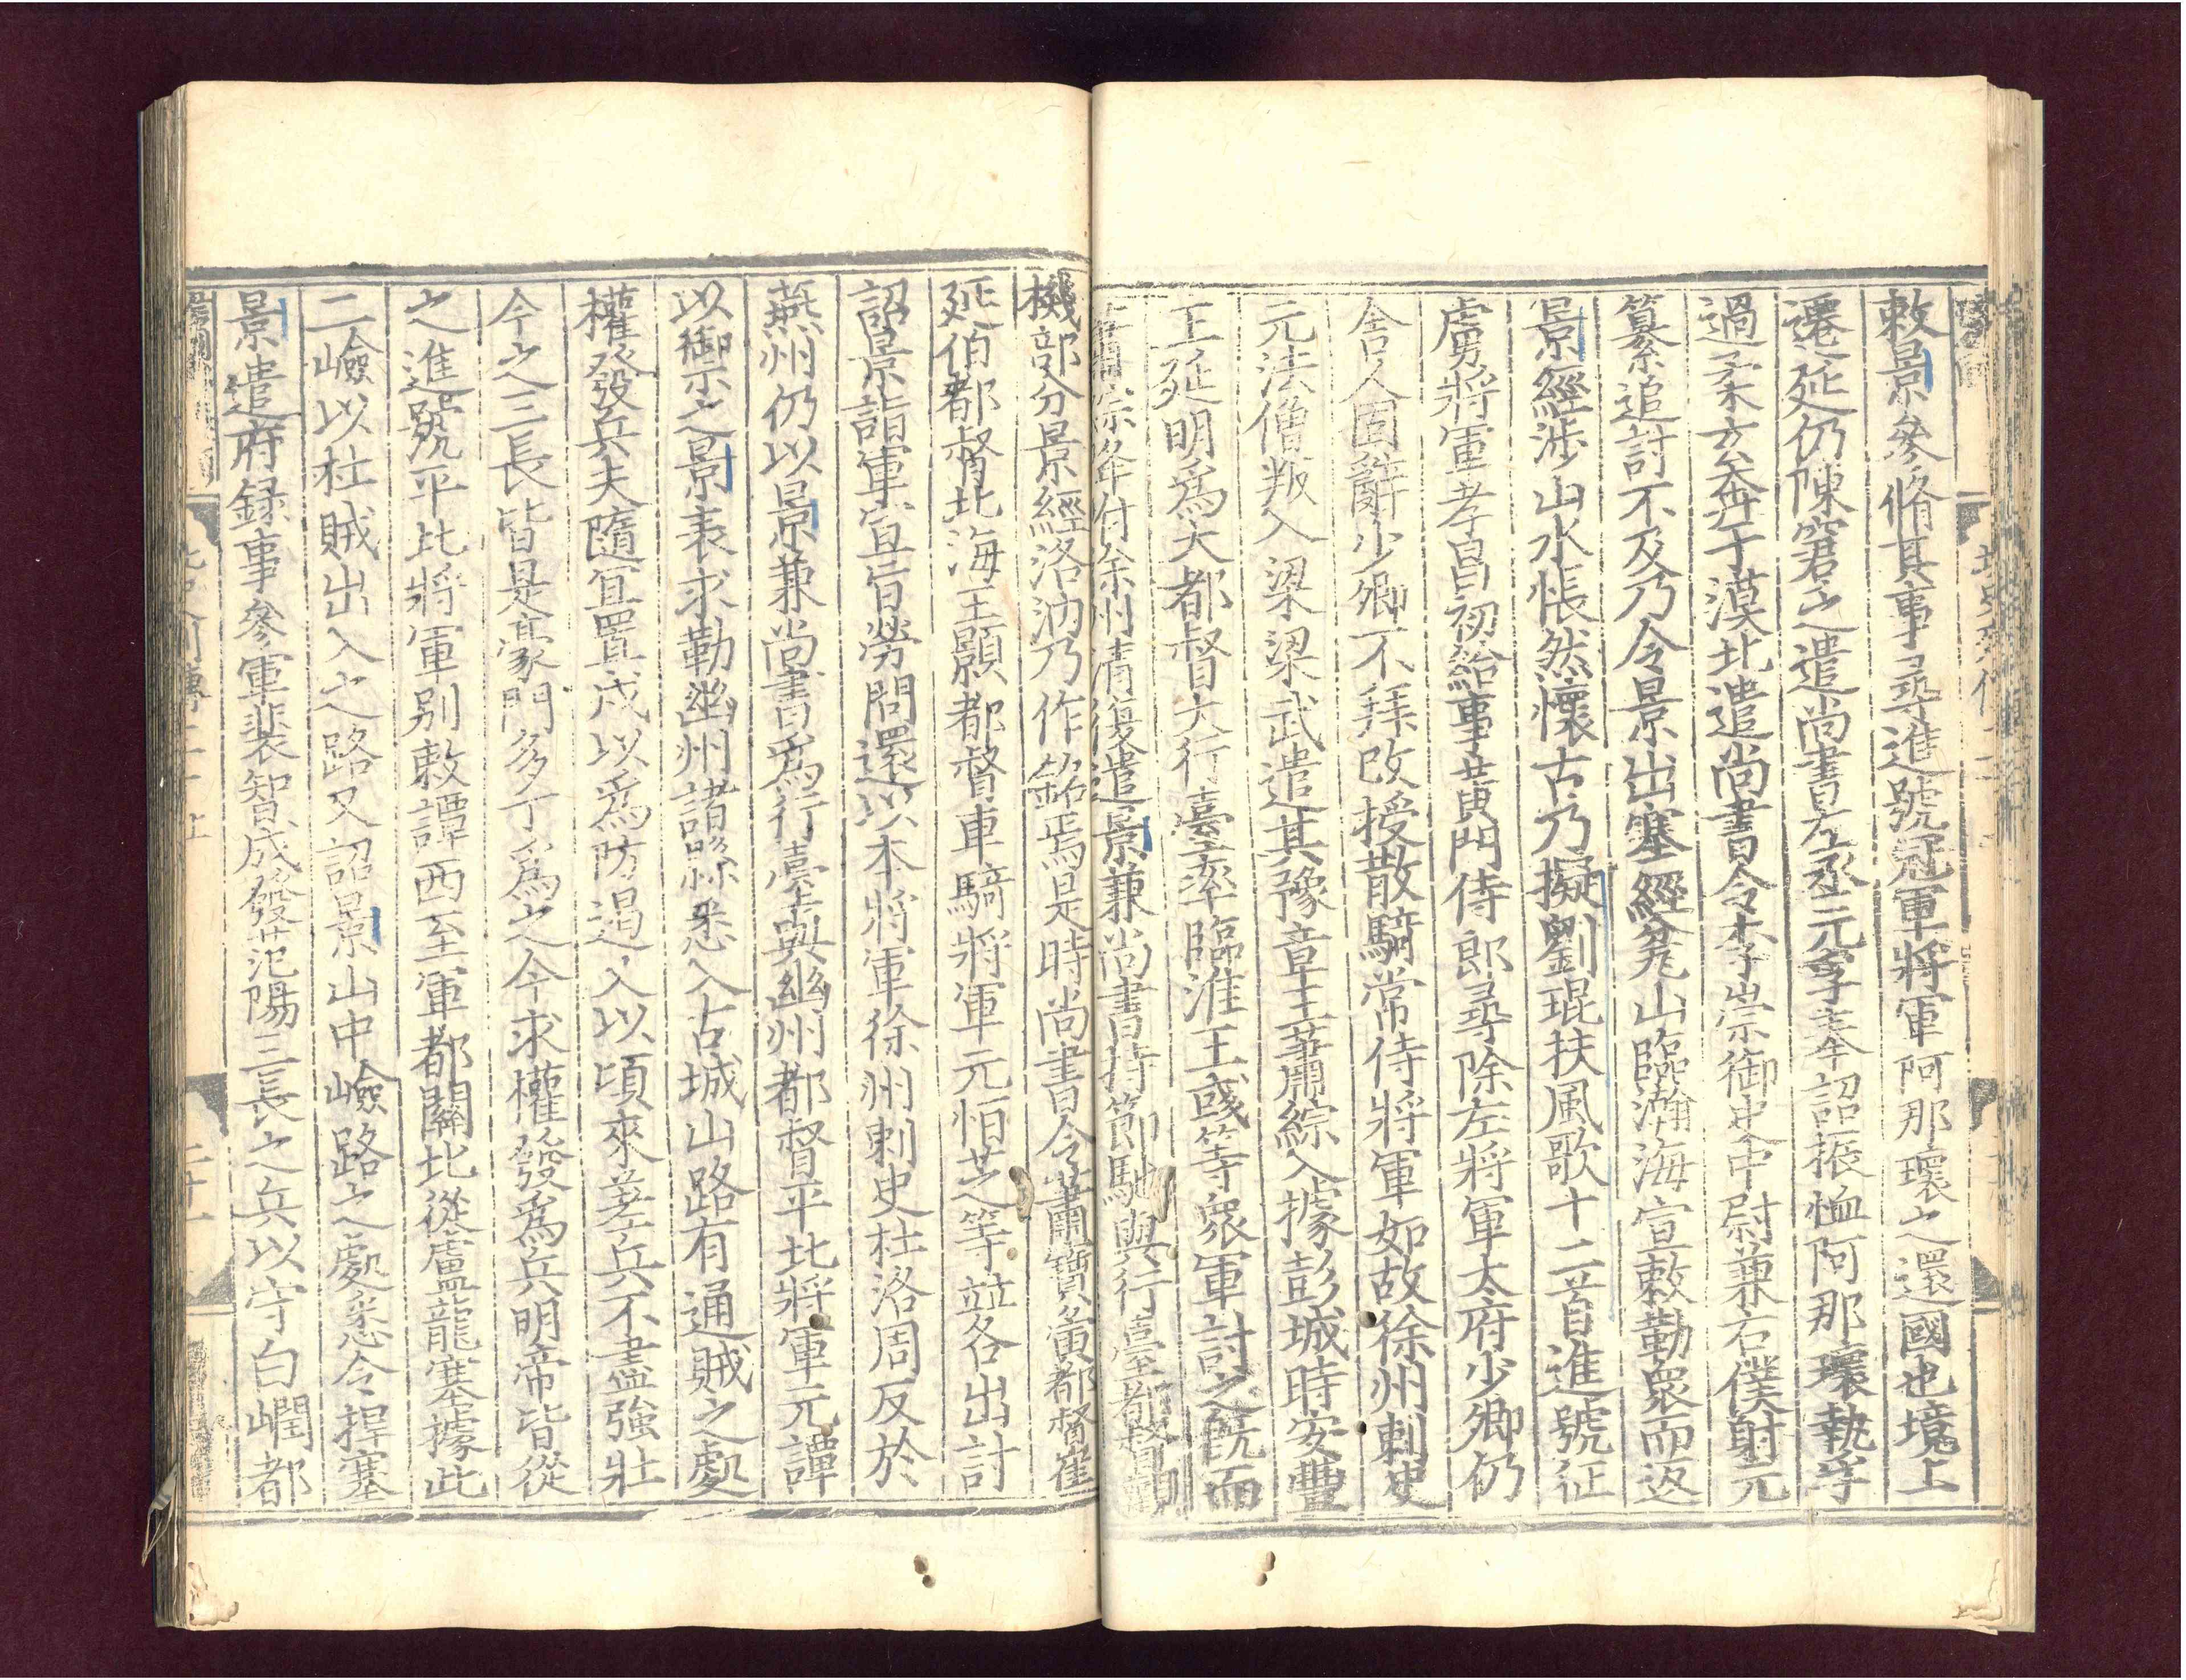 敕景參脩其事尋進號冠軍將軍阿那瓌之還國也境上
遷延仍陳窘乏遣尚書左丞元孚奉詔振恤阿那瓌執孚
過柔玄奔于漠北遣尚書令李崇御史中尉兼右僕射元
纂追討不及乃令景出塞經瓫山臨瀚海宣敕勒衆而返
景經涉山水悵然懷古乃擬劉琨扶風歌十二首進號征
虜將軍孝昌初給事黄門侍郎尋除左將軍太府少卿仍
舍人固辭少卿不拜改授散騎常侍將軍如故徐州刺史
元法僧叛入梁梁武遣其豫章王蕭綜入據彭城時安豐
王延明爲大都督大行臺率臨淮王彧等衆軍討之既而
蕭綜降付徐州清復遣景兼尚書持節馳與行臺都督觀
機部分景經洛汭乃作銘焉是時尚書令蕭寶夤都督崔
延伯都督北海王顥都督車騎將軍元恒芝等竝各出討
詔景詣軍宣旨勞問還以本將軍徐州刺史杜洛周反於
燕州仍以景兼尚書爲行臺與幽州都督平北將軍元譚
以御之景表求勒幽州諸縣悉入古城山路有通賊之處
權發兵夫隨宜置戍以爲防遏又以頃來差兵不盡強壯
今之三長皆是豪門多丁爲之今求權發爲兵明帝皆從
之進號平北將軍别敕譚西至軍都關北從盧龍塞據此
二嶮以杜賊出入之路又詔景山中嶮路之處悉令捍塞
景遣府録事參軍裴智成發范陽三長之兵以守白㵎都